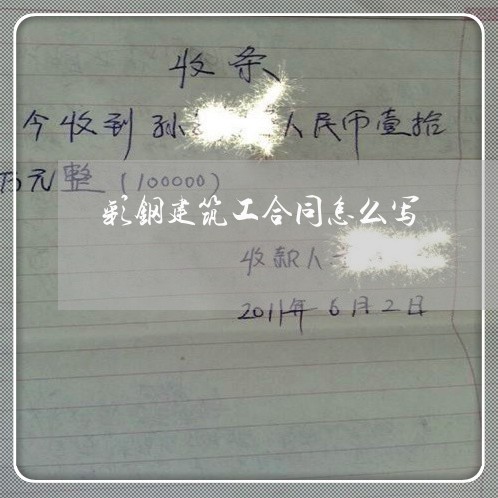 收条
今收到孙 人民币壹拾
万元整(100000)
彩钢建筑工合同怎么写
收款人
2011年6月2日